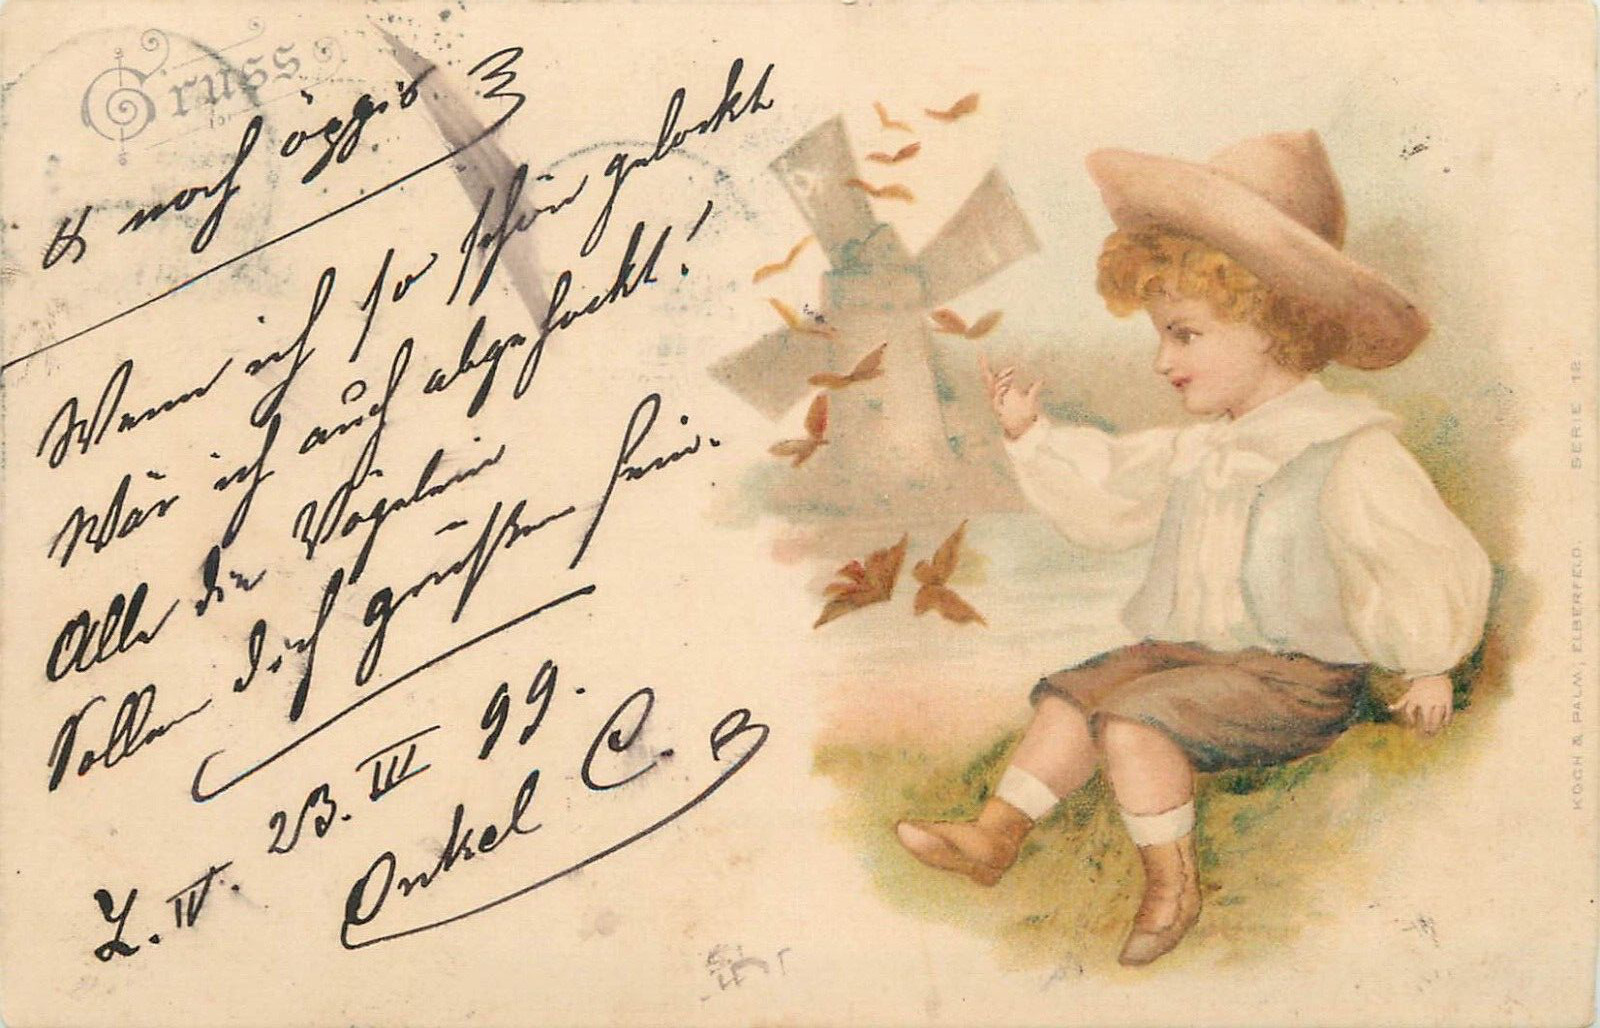 Gruss
& noch öppis.
Wenn ich so schön gelockt
Wär ich auch abgehockt!
Alle die Vögelein
Sollen dich grüßen fein.
23. III 99.
Z. IV.
Onkel C.
KOCH & PALM, ELBERFELD. SERIE 12